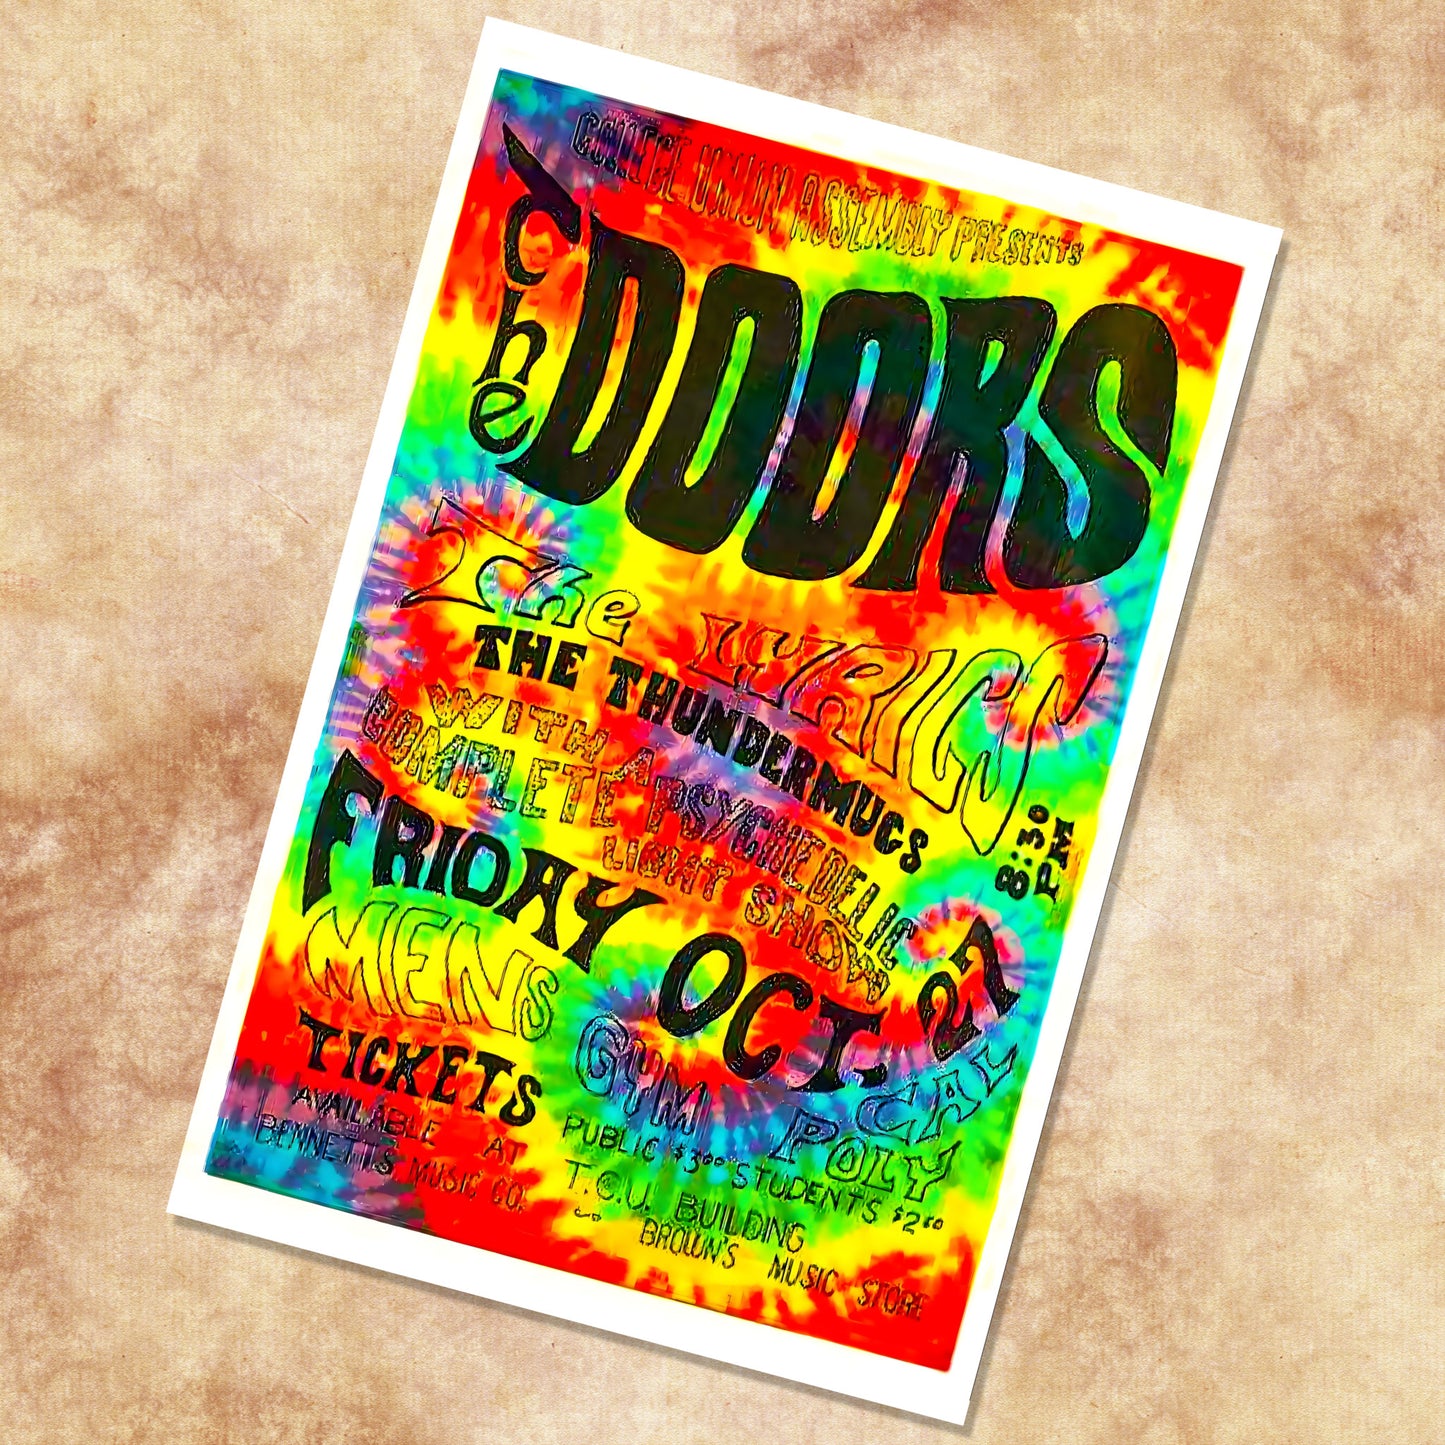 COLLEGE UNION ASSEMBLY PRESENTS
The DOORS
The LYRICS
THE THUNDERMUGS
8:30 PM
WITH A
COMPLETE PSYCHEDELIC
LIGHT SHOW
FRIDAY OCT. 27
MENS GYM CAL POLY
TICKETS
AVAILABLE AT
BENNETTS MUSIC CO.
PUBLIC $3.00 STUDENTS $2.00
T.C.U. BUILDING
BROWN'S MUSIC STORE